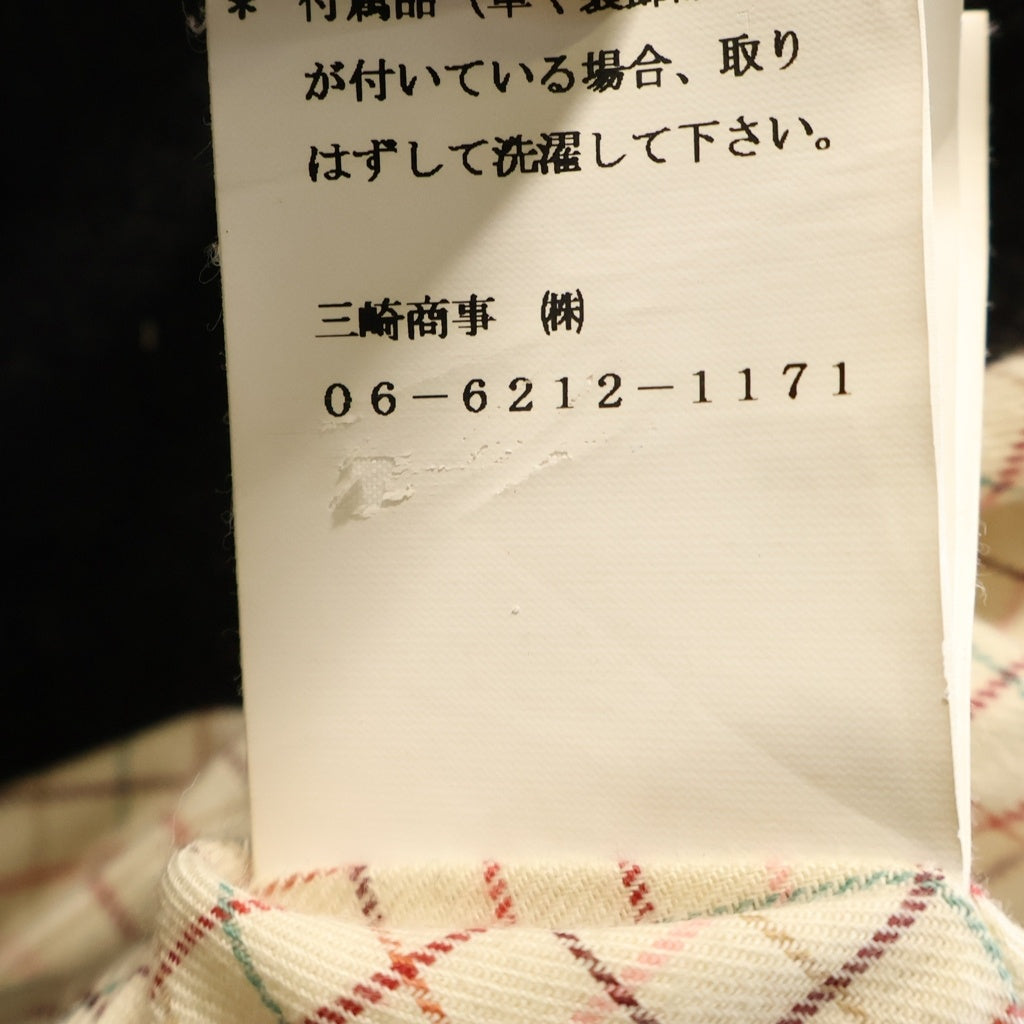 * 付属品（革、装飾
が付いている場合、取り
はずして洗濯して下さい。
三崎商事 ㈱
06-6212-1171